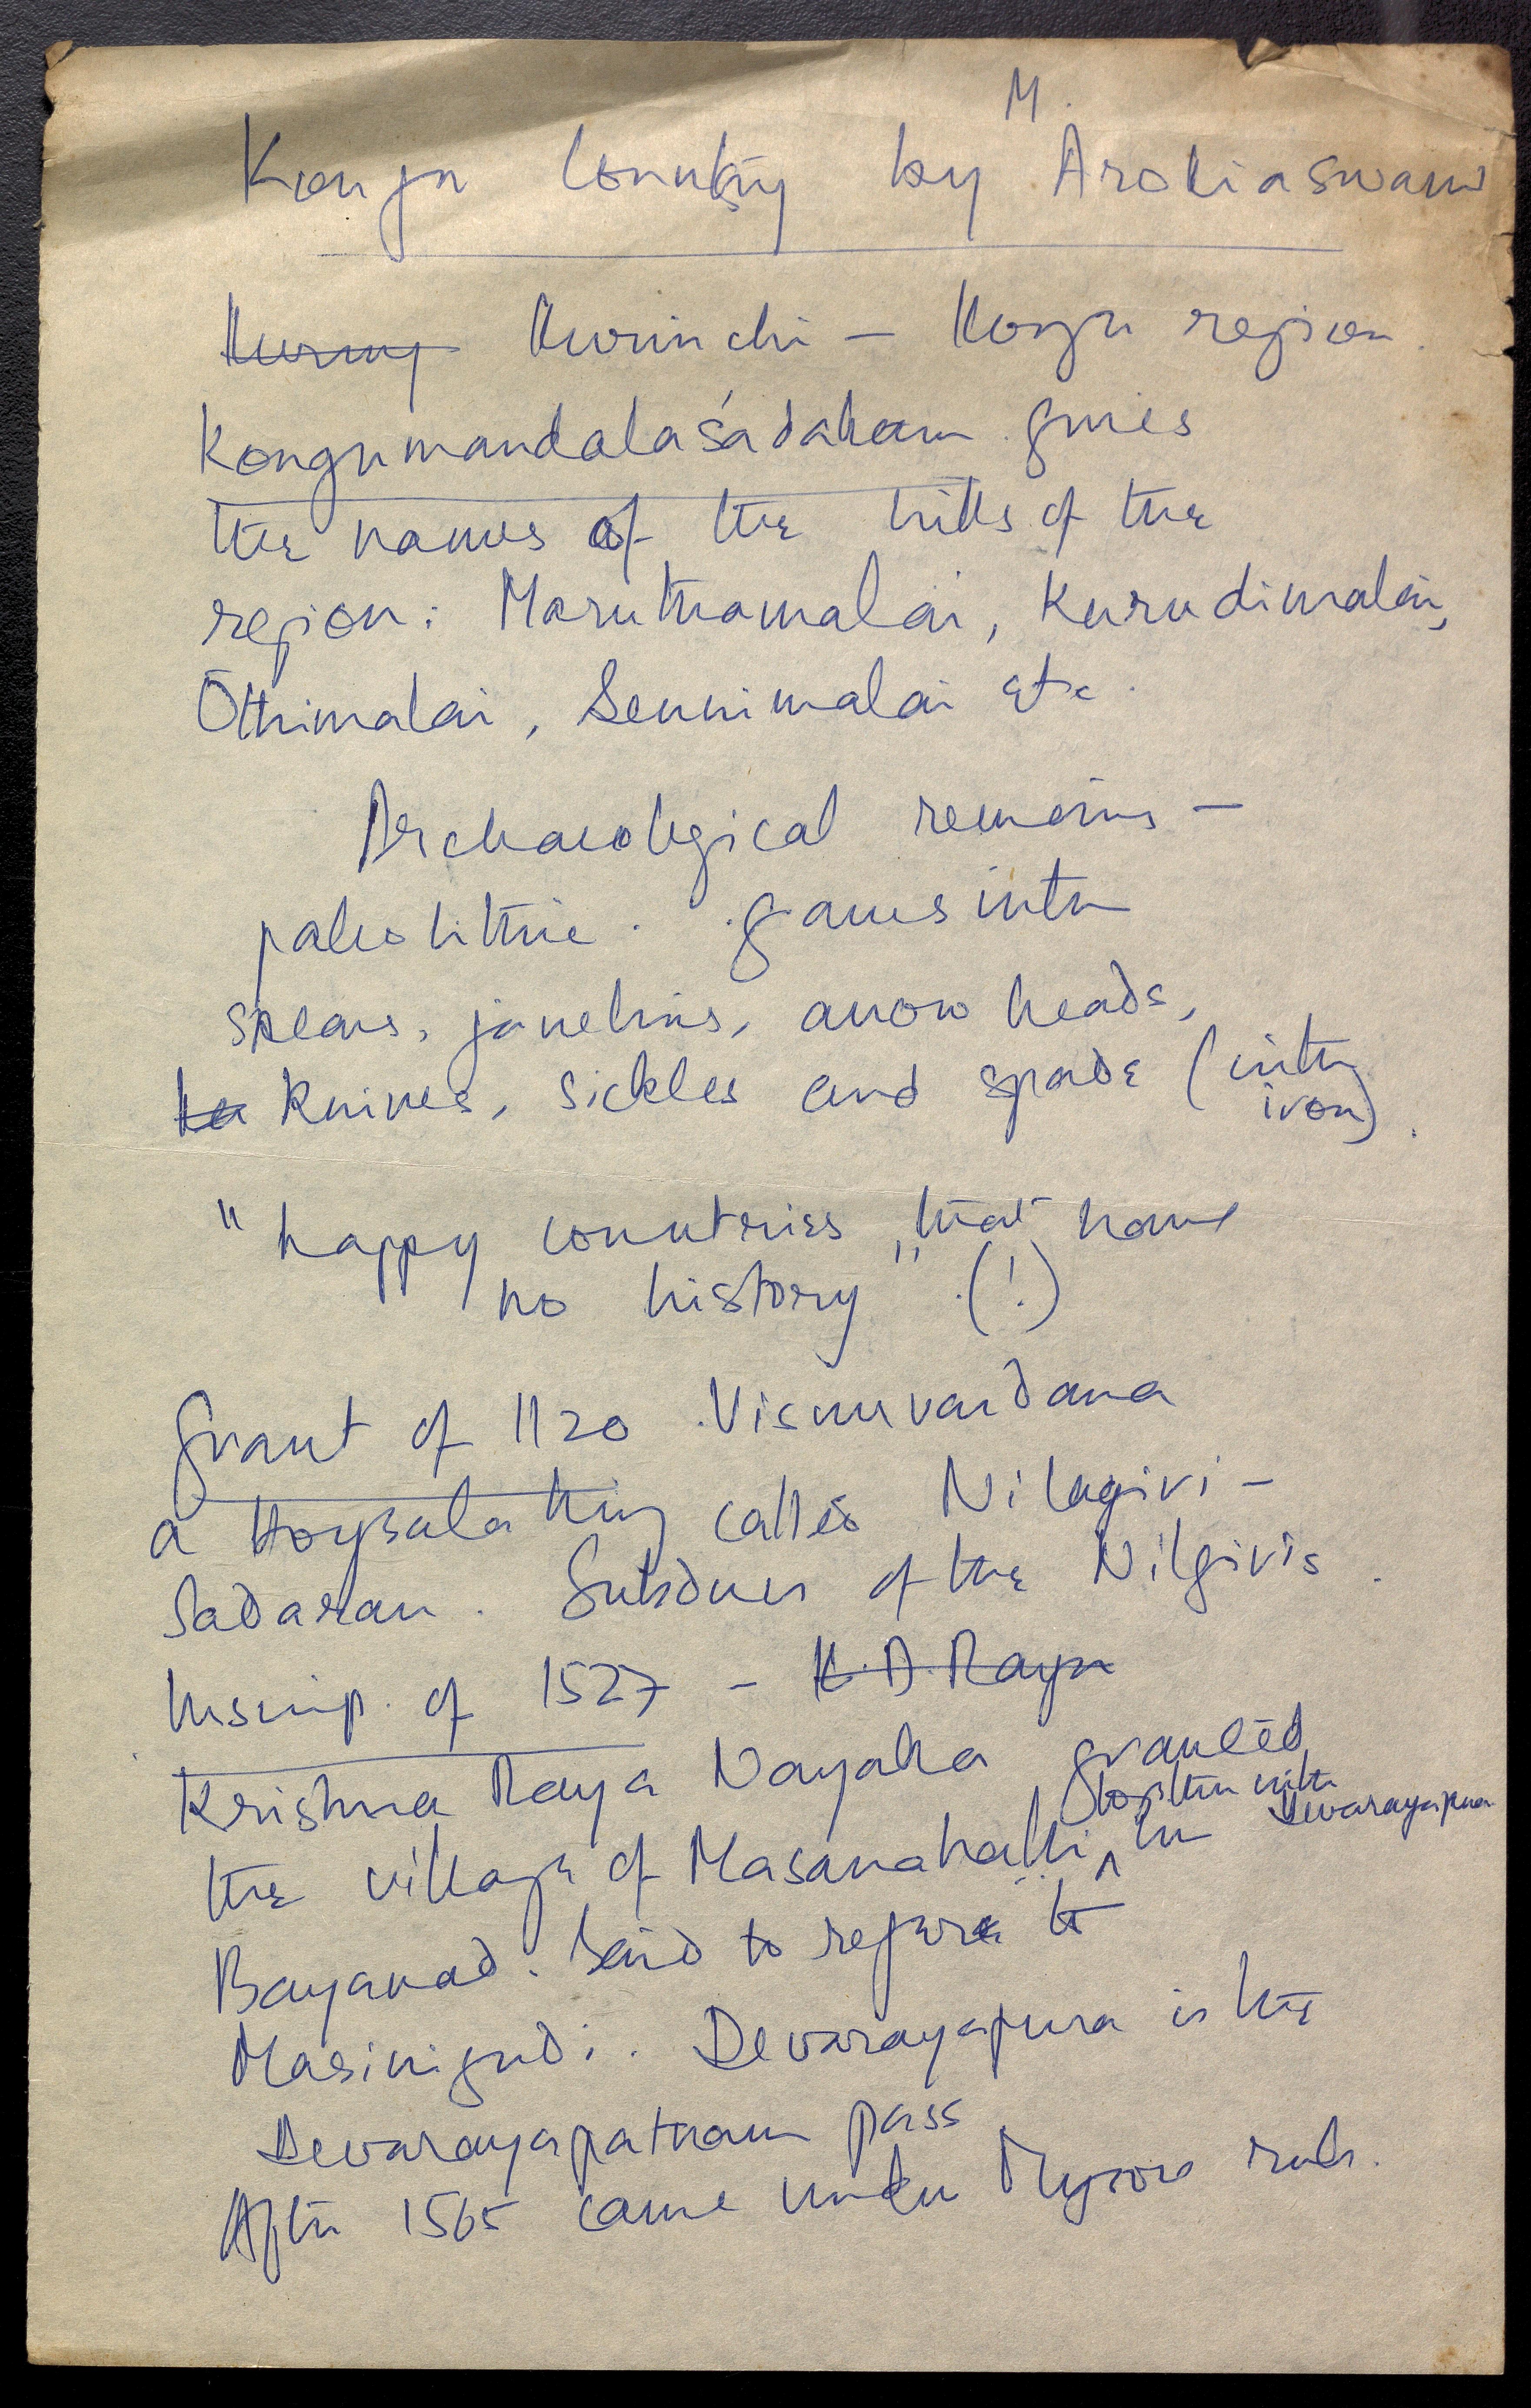 M.
Kongu Country by Arokiaswami
Kurinchi - Kongu region.
Kongumandalaśadakam gives
the names of the hills of the
region: Maruthamalai, Kurudimalai,
Ōthimalai, Sennimalai etc.
Archaeological remains -
paleolithic.
spears, javelins, arrow heads,
knives, sickles and spade (with
iron).
"happy countries that have
no history" (!)
Grant of 1120 Visnuvardana
a Hoysala King called Nilagiri -
Sadaran. Subduer of the Nilgiris.
Inscrip. of 1527 - K. D. Raya
Krishna Raya Nayaka granted
together with
Devarayapura
the village of Masanahalli in
Bayanad. Said to refer to
Masinigudi. Devarayapura is the
Devarayapatnam pass
After 1565 came under Mysore rule.